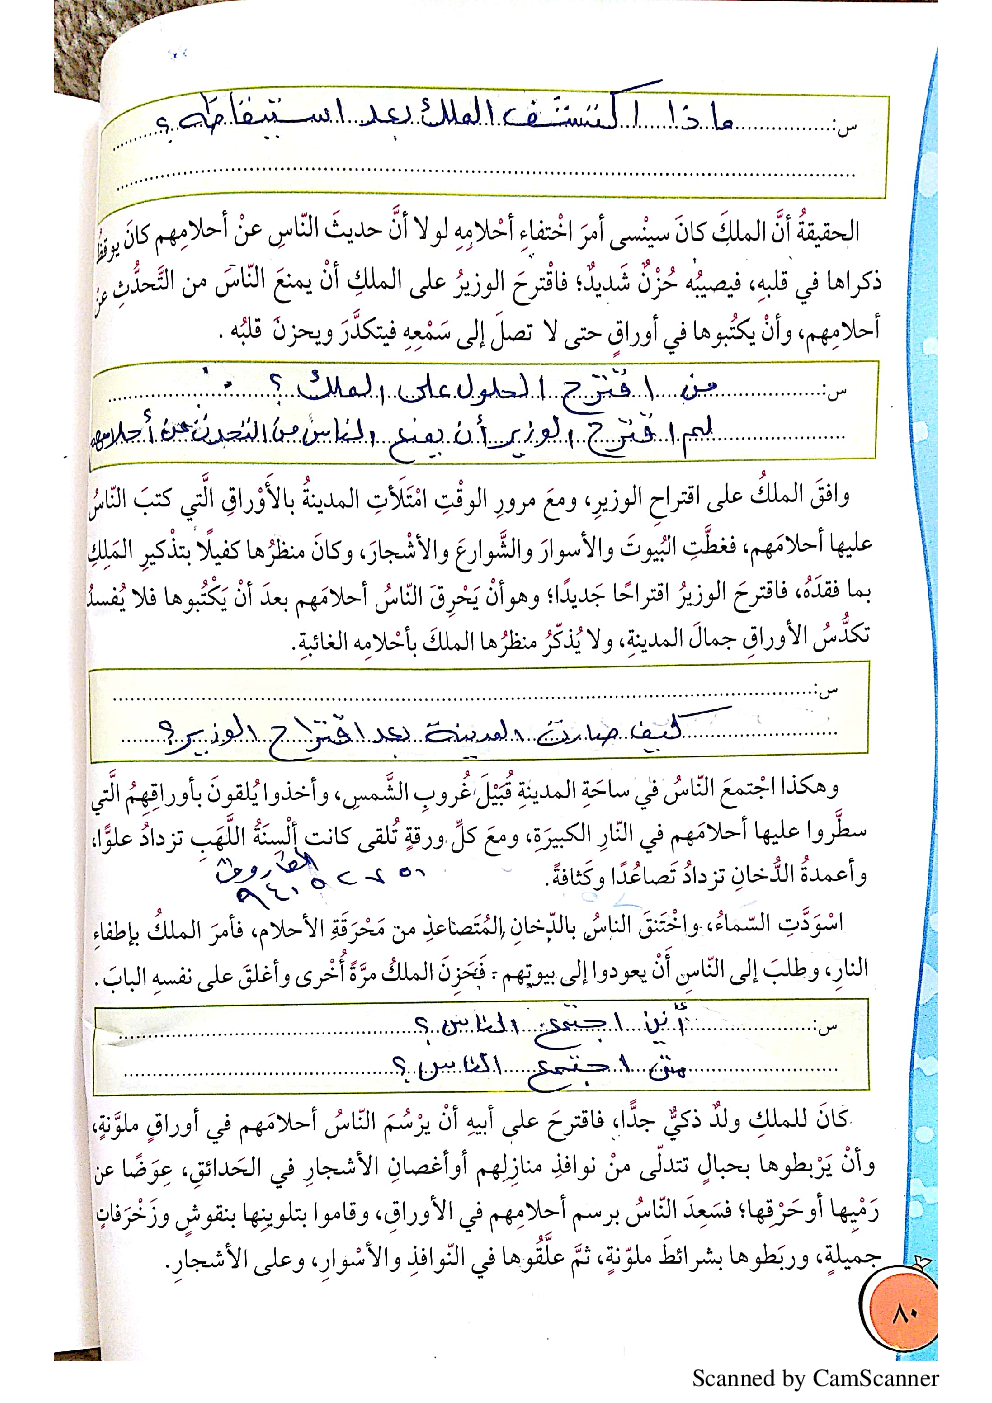 س: ماذا اكتشف الملك بعد استيقاظه؟
الحقيقةُ أنَّ الملكَ كانَ سينْسى أمرَ اخْتفاءِ أحْلامِهِ لولا أنَّ حديثَ النّاسِ عنْ أحلامِهم كانَ يوقظُ
ذكراها في قلبِهِ، فيصيبُه حُزْنٌ شَديدٌ؛ فاقْترحَ الوزيرُ على الملكِ أنْ يمنعَ النّاسَ من التَّحدُّثِ عنْ
أحلامِهم، وأنْ يكتُبوها في أوراقٍ حتى لا تصلَ إلى سَمْعِهِ فيتكدَّرَ ويحزنَ قلبُه .
س: من اقترح الحلول على الملك؟
لم اقترح الوزير أن يمنع الناس من التحدث عن أحلامهم
وافقَ الملكُ على اقتراحِ الوزيرِ، ومعَ مرورِ الوقْتِ امْتَلَأتِ المدينةُ بالأوْراقِ الَّتي كتبَ النّاسُ
عليها أحلامَهم، فغطَّتِ البُيوتَ والأسوارَ والشَّوارعَ والأشْجارَ، وكانَ منظرُها كفيلًا بتذْكيرِ المَلِكِ
بما فقدَهُ، فاقترحَ الوزيرُ اقتراحًا جَديدًا؛ وهوأنْ يَحْرِقَ النّاسُ أحلامَهم بعدَ أنْ يَكْتُبوها فلا يُفسدُ
تكدُّسُ الأوراقِ جمالَ المدينةِ، ولا يُذكّرُ منظرُها الملكَ بأحْلامِه الغائبةِ.
س:
كيف صارت المدينة بعد اقتراح الوزير؟
وهكذا اجْتمعَ النّاسُ في ساحَةِ المدينةِ قُبَيْلَ غُروبِ الشَّمسِ، وأخذوا يُلقونَ بأوراقِهِمُ الَّتي
سطَّروا عليها أحلامَهم في النّارِ الكبيرَةِ، ومعَ كلِّ ورقةٍ تُلقى كانت ألْسِنَةُ اللَّهَبِ تزدادُ علوًّا،
وأعمدةُ الدُّخانِ تزدادُ تَصاعُدًا وكَثافةً.
اسْوَدَّتِ السّماءُ، واخْتنقَ الناسُ بالدّخانِ المُتَصاعدِ من مَحْرَقَةِ الأحلامِ، فأمرَ الملكُ بإطفاءِ
النارِ، وطلبَ إلى النّاسِ أنْ يعودوا إلى بيوتِهم - فَحَزِنَ الملكُ مرَّةً أُخْرى وأغلقَ على نفسهِ البابَ .
س: أين اجتمع الناس؟
متى اجتمع الناس؟
كانَ للملكِ ولدٌ ذكيٌّ جدًّا، فاقترحَ على أبيهِ أنْ يرْسُمَ النّاسُ أحلامَهم في أوراقٍ ملوَّنةٍ،
وأنْ يَرْبطوها بحبالٍ تتدلّى منْ نوافذِ منازلِهم أوأغصانِ الأشجارِ في الحَدائقِ، عِوَضًا عن
رَمْيِها أوحَرْقِها؛ فسَعِدَ النّاسُ برسمِ أحلامِهم في الأوراقِ، وقاموا بتلوينِها بنقوشٍ وزَخْرَفاتٍ
جميلةٍ، وربَطوها بشرائطَ ملوّنةٍ، ثمَّ علَّقُوها في النّوافذِ والأسْوارِ، وعلى الأشجارِ.
٨٠
Scanned by CamScanner